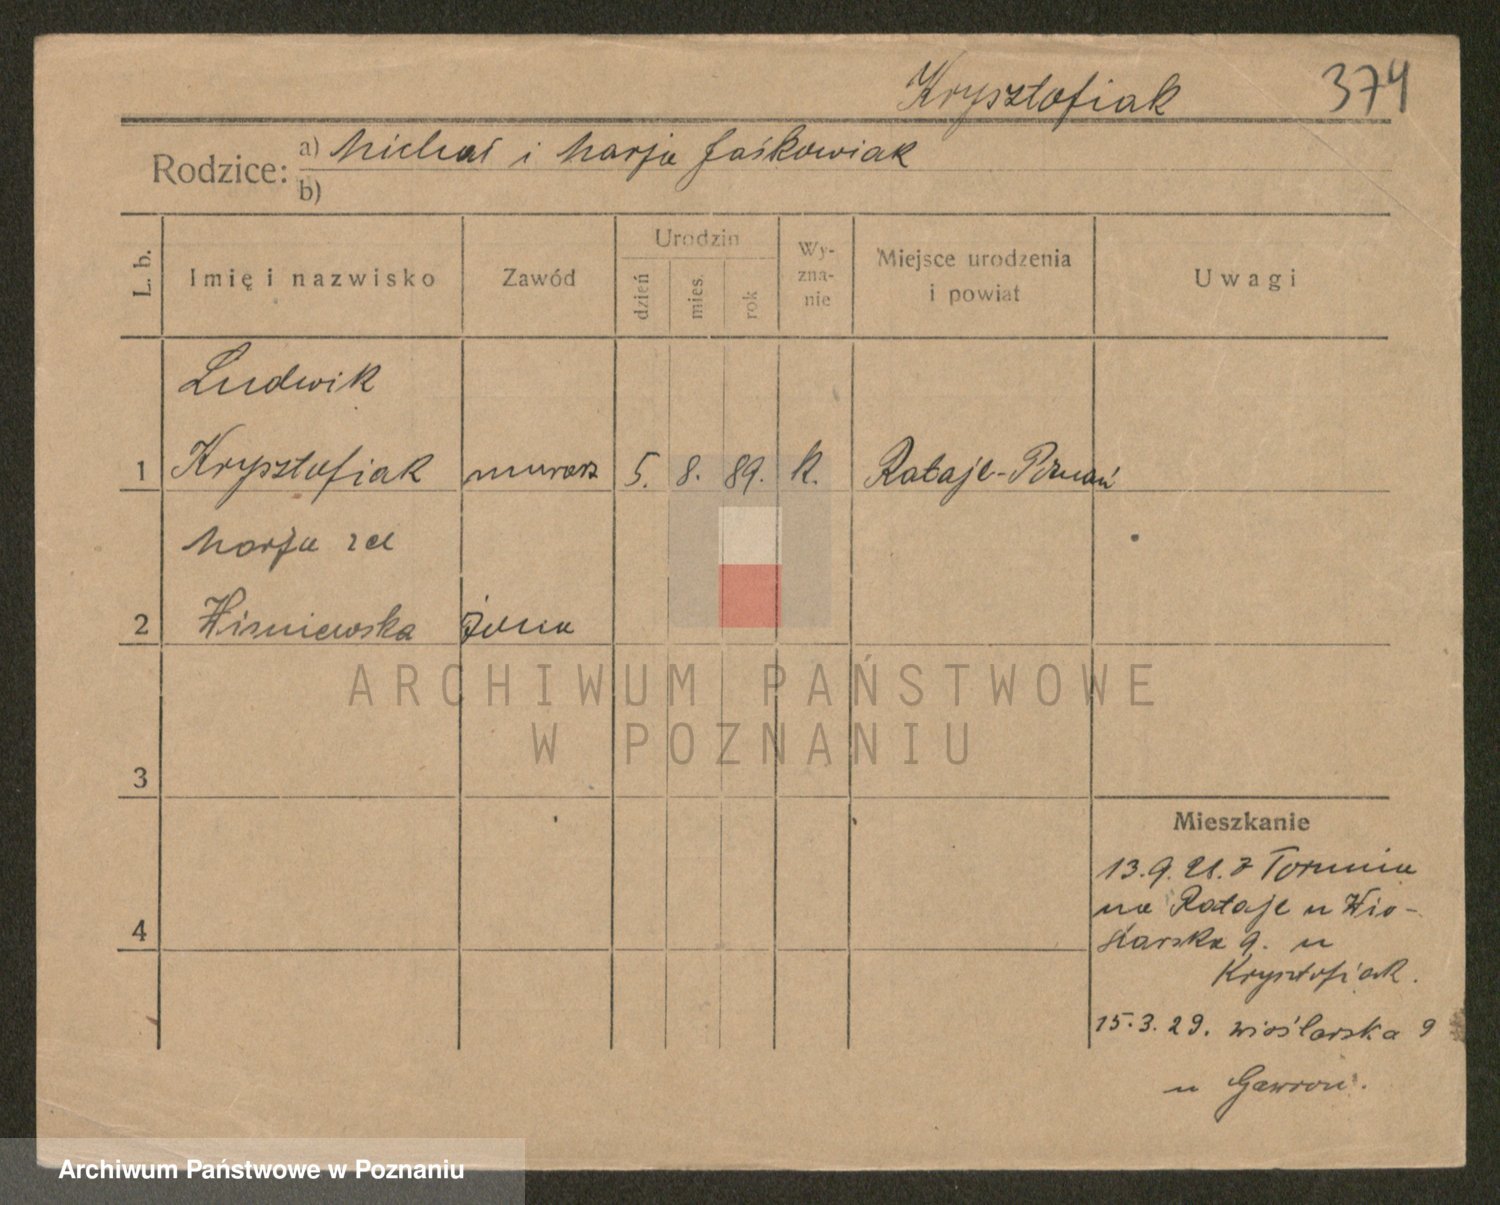 Krysztofiak 374
Rodzice: a) Michał i Marja Jaśkowiak
b)
L. b. Imię i nazwisko Zawód Urodzin dzień mies. rok Wy-zna-nie Miejsce urodzenia i powiat Uwagi
Ludwik
1 Krysztofiak murarz 5. 8. 89. k. Rataje-Poznań
Marja zd
2 Wisniewska żona
3
4
Mieszkanie
13.9.21. z Torunia
na Rataje u Wio-
ślarska 9. u
Krysztofiak.
15.3.29. wioślarska 9
u Gawron.
ARCHIWUM PAŃSTWOWE
W POZNANIU
Archiwum Państwowe w Poznaniu